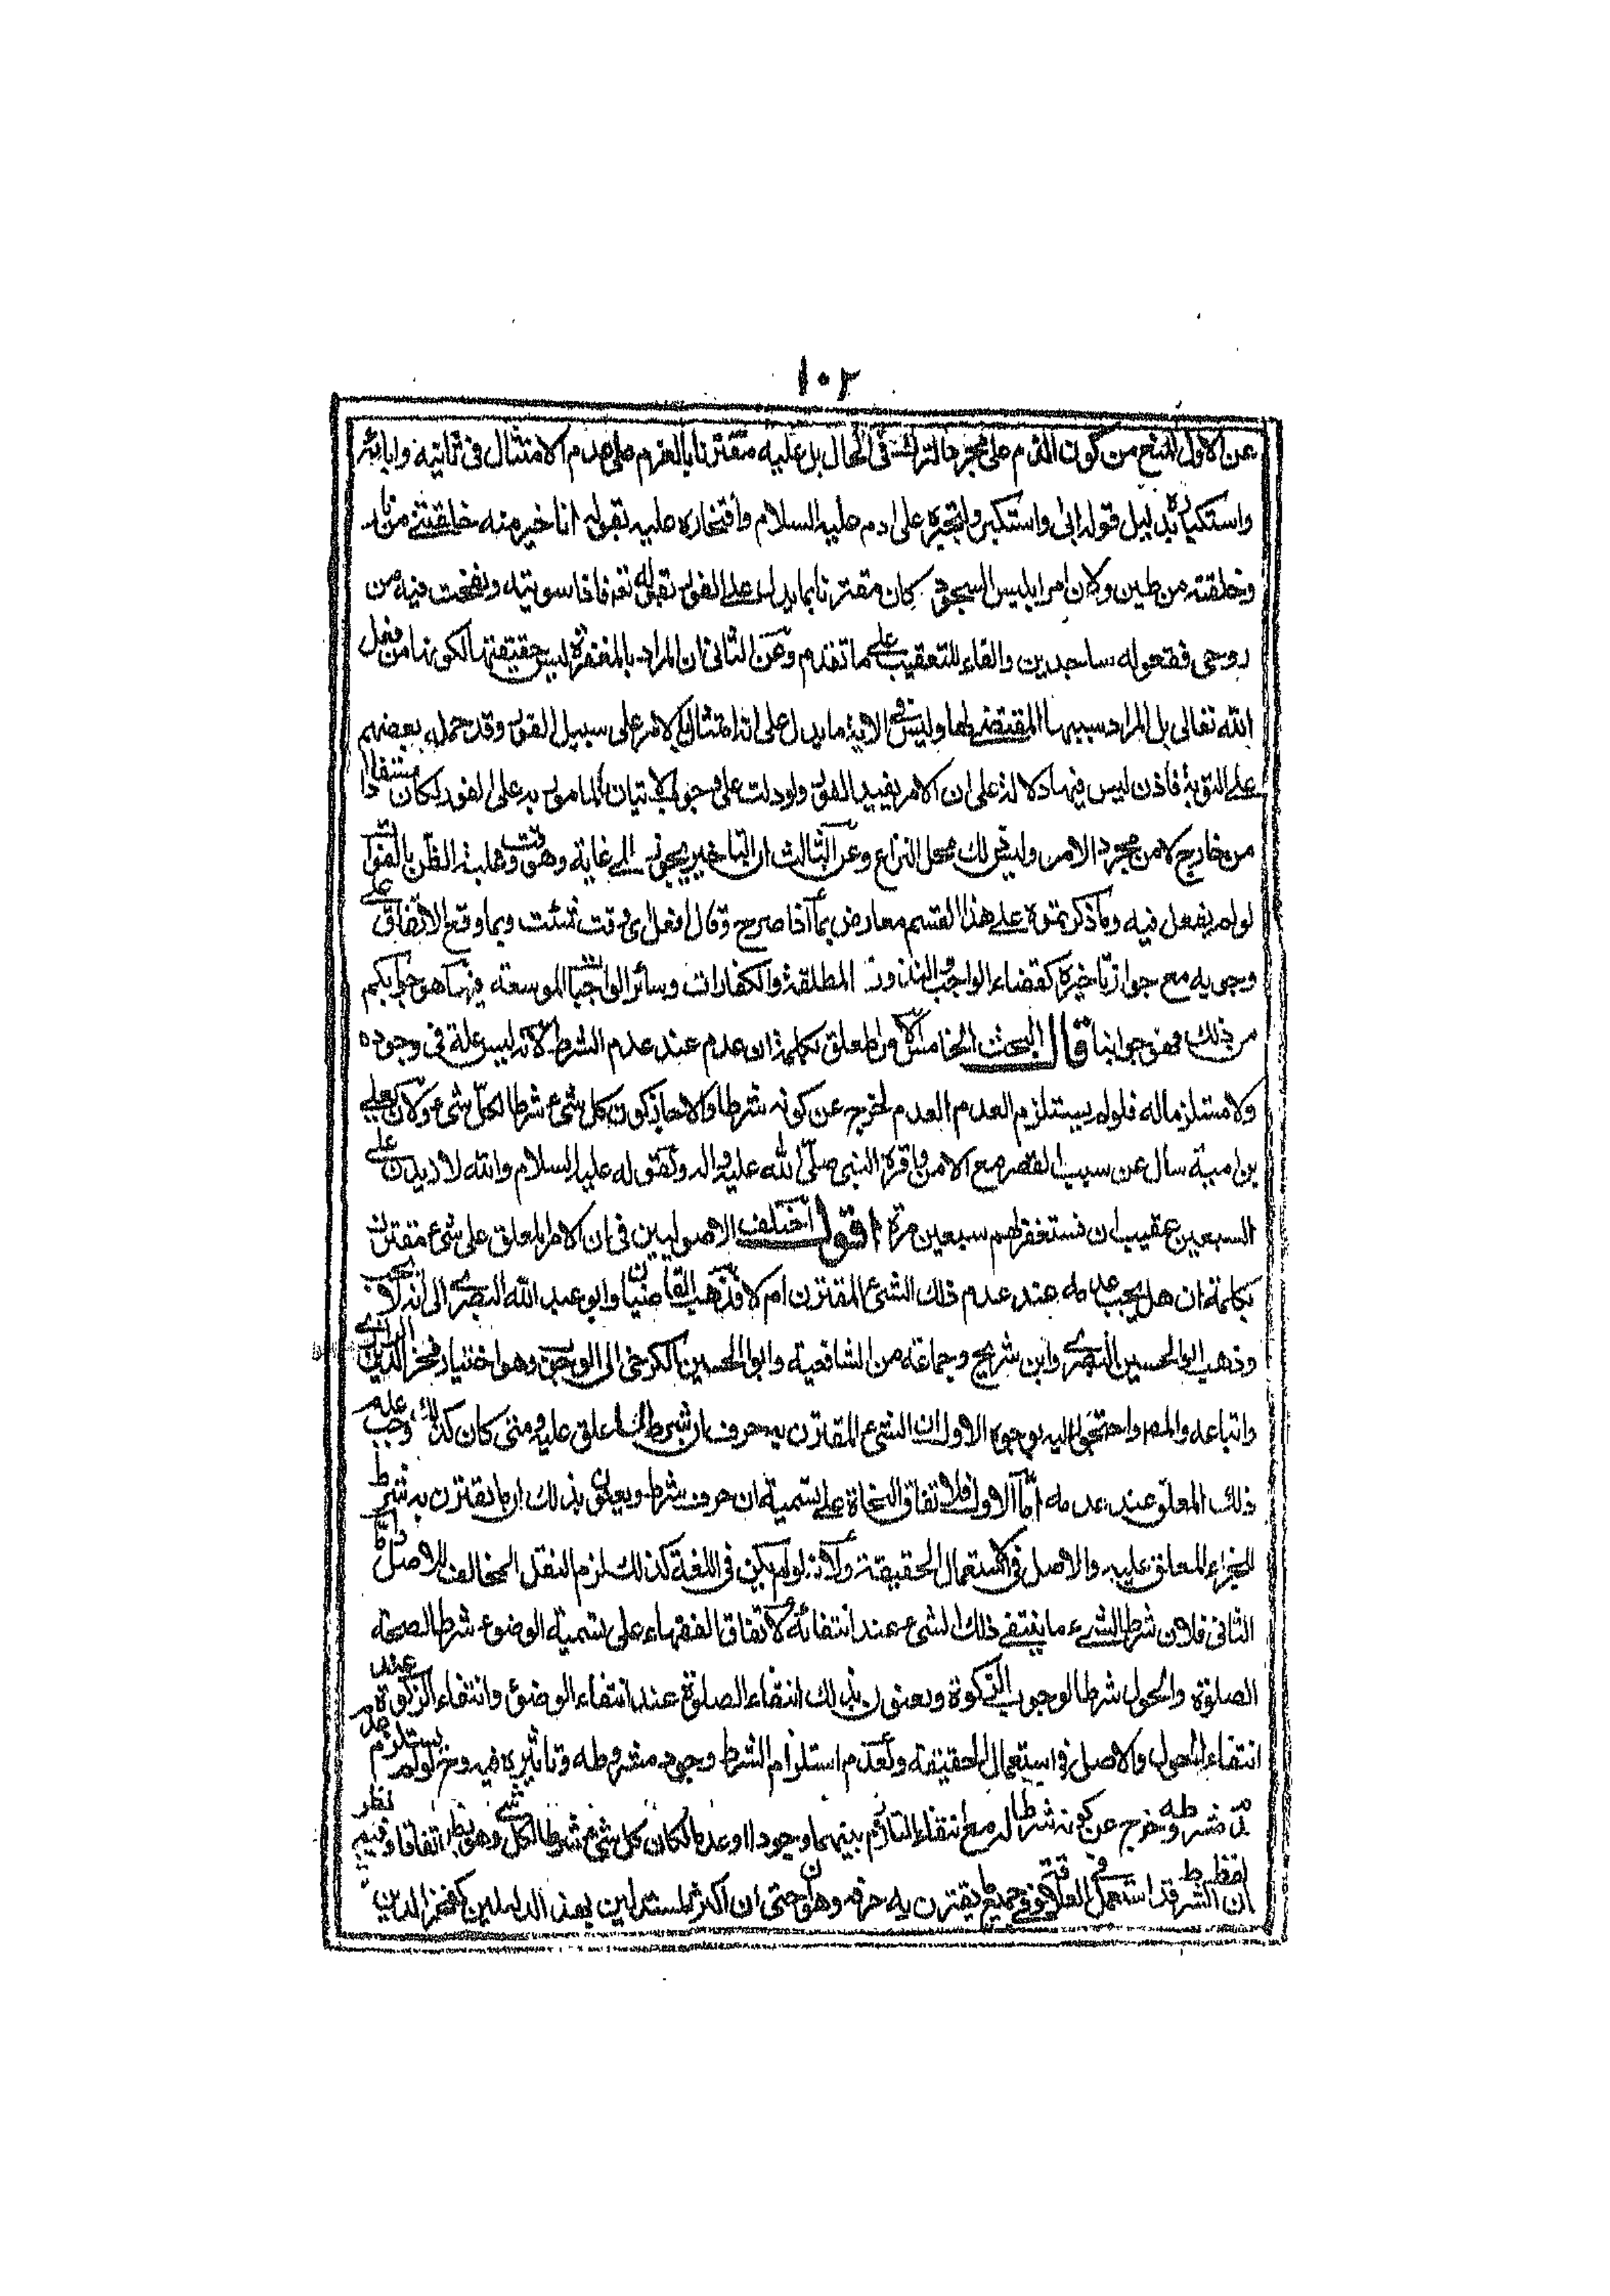 ١٠٢
عن الاول المنع من كون الذم على مجرد الترك فى الحال بل عليه مقترنا بالعزم على عدم الامتثال فى ثانيه وابائه
واستكباره بدليل قوله ابى واستكبر ولتجبره على ادم عليه السلام وافتخاره عليه بقوله انا خير منه خلقتنى من نار
وخلقته من طين ولان امر ابليس بالسجود كان مقترنا بما يدل على الفور بقوله تعه فاذا سويته ونفخت فيه من
روحى فقعوا له ساجدين والفاء للتعقيب على ما تقدم وعن الثانى ان المراد بالمغفرة ليس حقيقتها لكونها من فعل
الله تعالى بل المراد سببها المقتضى لها وليس فى الاية ما يدل على ان امتثال الامر على سبيل الفور وقد حمله بعضهم
على التوبة فاذن ليس فيها دلالة على ان الامر يفيد الفور ولو دلت على وجوب الاتيان بالمامور به على الفور لكان مستفادا
من خارج لا من مجرد الامر وليس ذلك محل النزاع وعن الثالث ان التاخير يجوز الى غاية وهو وقت غلبة الظن بالفوات
لو لم يفعل فيه وما ذكرتموه على هذا القسم معارض بما اذا صرح وقال افعل اى وقت شئت وبما وقع الاتفاق على
وجوبه مع جواز تاخيره كقضاء الواجب والنذور المطلقة والكفارات وسائر الواجبات الموسعة فهما هو جوابكم
من ذلك فهو جوابنا قال البحث الخامس الامر المعلق بكلمة ان عدم عند عدم الشرط لانه ليس علة فى وجوده
ولا مستلزما له فلو لم يستلزم العدم العدم لخرج عن كونه شرطا والا لجاز كون كل شىء شرطا لكل شىء ولان يعلى
بن امية سال عن سبب القصر مع الامن واقره النبى صلى الله عليه واله ولقوله عليه السلام والله لازيدن على
السبعين عقيب ان تستغفر لهم سبعين مرة اقول اختلف الاصوليين فى ان الامر المعلق على شىء مقترن
بكلمة ان هل يجب عدمه عند عدم ذلك الشىء المقترن ام لا فذهب القاضيان وابو عبد الله البصرى الى انه لا يجب
وذهب ابو الحسين البصرى وابن شريح وجماعة من الشافعية وابو الحسين الكرخى الى الوجوب وهو اختيار فخر الدين الرازى
واتباعه والمص واحتجوا اليه بوجوه الاول ان الشىء المقترن به حرف ان شرط لما علق عليه ومتى كان كذلك وجب عدم
ذلك المعلق عند عدمه اما الاول فلاتفاق النحاة على تسمية ان حرف شرط ويعنون بذلك ان ما يقترن به شرط
للجزاء المعلق عليه والاصل فى الاستعمال الحقيقة ولانه لو لم يكن فى اللغة كذلك لزم النقل المخالف للاصل واما
الثانى فلان شرط الشىء ما ينتفى ذلك الشىء عند انتفائه لاتفاق الفقهاء على تسمية الوضوء شرط الصحة
الصلوة والحول شرطا لوجوب الزكوة ويعنون بذلك انتفاء الصلوة عند انتفاء الوضوء وانتفاء الزكوة عند
انتفاء الحول والاصل فى استعمال الحقيقة ولعدم استلزام الشرط وجود مشروطه وتاثيره فيه وح لو لم يستلزم عدمه
عدم مشروطه خرج عن كونه شرطا له مع انتفاء التلازم بينهما وجودا او عدما لكان كل شىء شرطا لكل شىء وهو بط اتفاقا وفيه نظر
ان لفظ الشرط قد استعمل فى العلاقة فى جميع ما يقترن به حرفه وهو ان حتى ان اكثر المستدلين بهذا الدليلين كفخر الدين